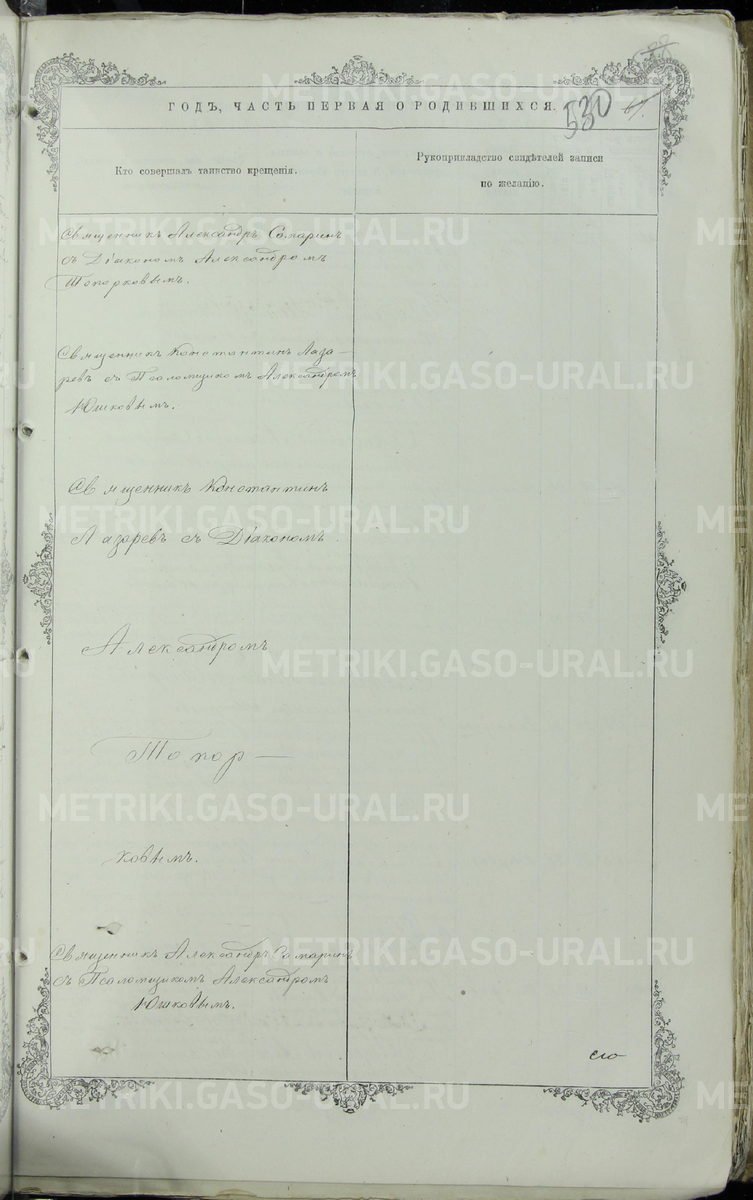 530
ГОДЪ, ЧАСТЬ ПЕРВАЯ О РОДИВШИХСЯ.
Кто совершалъ таинство крещенія.
Рукоприкладство свидѣтелей записи
по желанію.
Священникъ Александръ Самаринъ
съ Діакономъ Александромъ
Топорковымъ.
Священникъ Константинъ Лаза-
ревъ съ Псаломщикомъ Александромъ
Юшковымъ.
Священникъ Константинъ
Лазаревъ съ Діакономъ
Александромъ
Топор-
ковымъ.
Священникъ Александръ Самаринъ
съ Псаломщикомъ Александромъ
Юшковымъ.
METRIKI.GASO-URAL.RU